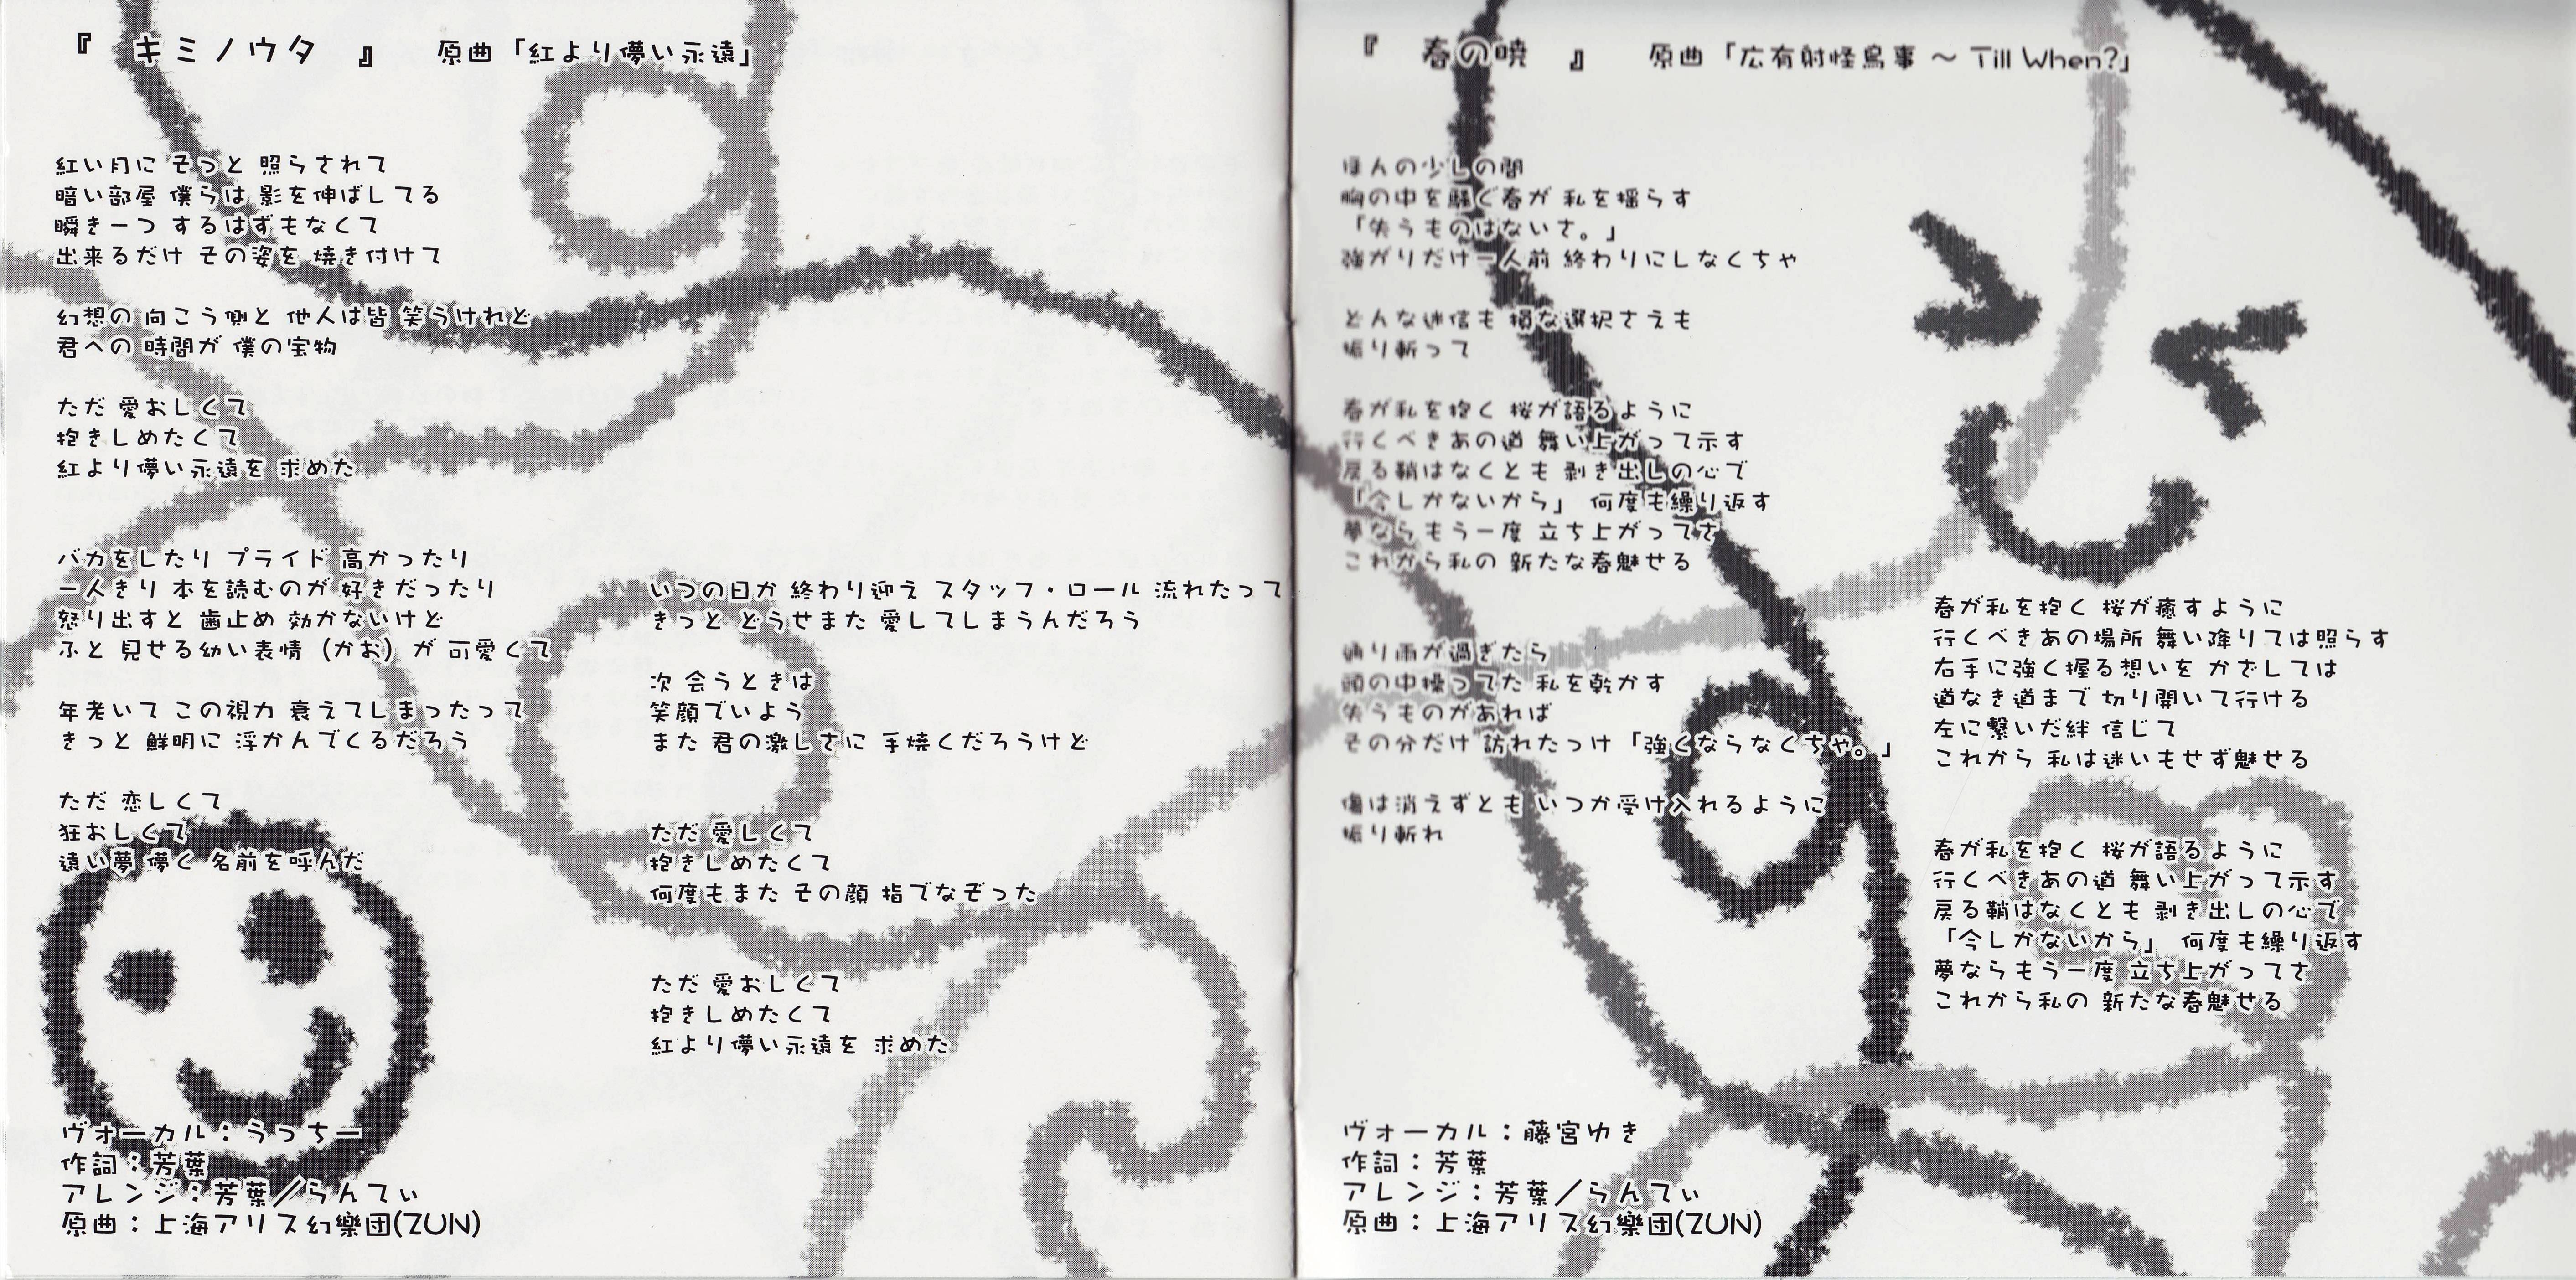 『 キミノウタ 』 原曲「紅より儚い永遠」
紅い月に そっと 照らされて
暗い部屋 僕らは 影を伸ばしてる
瞬き一つ するはずもなくて
出来るだけ その姿を 焼き付けて
幻想の 向こう側と 他人は皆 笑うけれど
君への 時間が 僕の宝物
ただ 愛おしくて
抱きしめたくて
紅より儚い永遠を 求めた
バカをしたり プライド 高かったり
一人きり 本を読むのが 好きだったり
怒り出すと 歯止め 効かないけど
ふと 見せる幼い表情（かお）が 可愛くて
年老いて この視力 衰えてしまったって
きっと 鮮明に 浮かんでくるだろう
ただ 恋しくて
狂おしくて
遠い夢 儚く 名前を呼んだ
いつの日か 終わり迎え スタッフ・ロール 流れたって
きっと どうせまた 愛してしまうんだろう
次 会うときは
笑顔でいよう
また 君の激しさに 手焼くだろうけど
ただ 愛しくて
抱きしめたくて
何度もまた その顔 指でなぞった
ただ 愛おしくて
抱きしめたくて
紅より儚い永遠を 求めた
ヴォーカル：うっちー
作詞：芳葉
アレンジ：芳葉／らんてぃ
原曲：上海アリス幻樂団(ZUN)
『 春の暁 』 原曲「広有射怪鳥事 ～ Till When?」
ほんの少しの間
胸の中を騒ぐ春が 私を揺らす
「失うものはないさ。」
強がりだけ一人前 終わりにしなくちゃ
どんな迷信も 損な選択さえも
振り斬って
春が私を抱く 桜が語るように
行くべきあの道 舞い上がって示す
戻る鞘はなくとも 剥き出しの心で
「今しかないから」 何度も繰り返す
夢ならもう一度 立ち上がってさ
これから私の 新たな春魅せる
通り雨が過ぎたら
頭の中燥ってた 私を乾かす
失うものがあれば
その分だけ 訪れたっけ「強くならなくちゃ。」
傷は消えずとも いつか受け入れるように
振り斬れ
春が私を抱く 桜が癒すように
行くべきあの場所 舞い降りては照らす
右手に強く握る想いを かざしては
道なき道まで 切り開いて行ける
左に繋いだ絆 信じて
これから 私は迷いもせず魅せる
春が私を抱く 桜が語るように
行くべきあの道 舞い上がって示す
戻る鞘はなくとも 剥き出しの心で
「今しかないから」 何度も繰り返す
夢ならもう一度 立ち上がってさ
これから私の 新たな春魅せる
ヴォーカル：藤宮ゆき
作詞：芳葉
アレンジ：芳葉／らんてぃ
原曲：上海アリス幻樂団(ZUN)